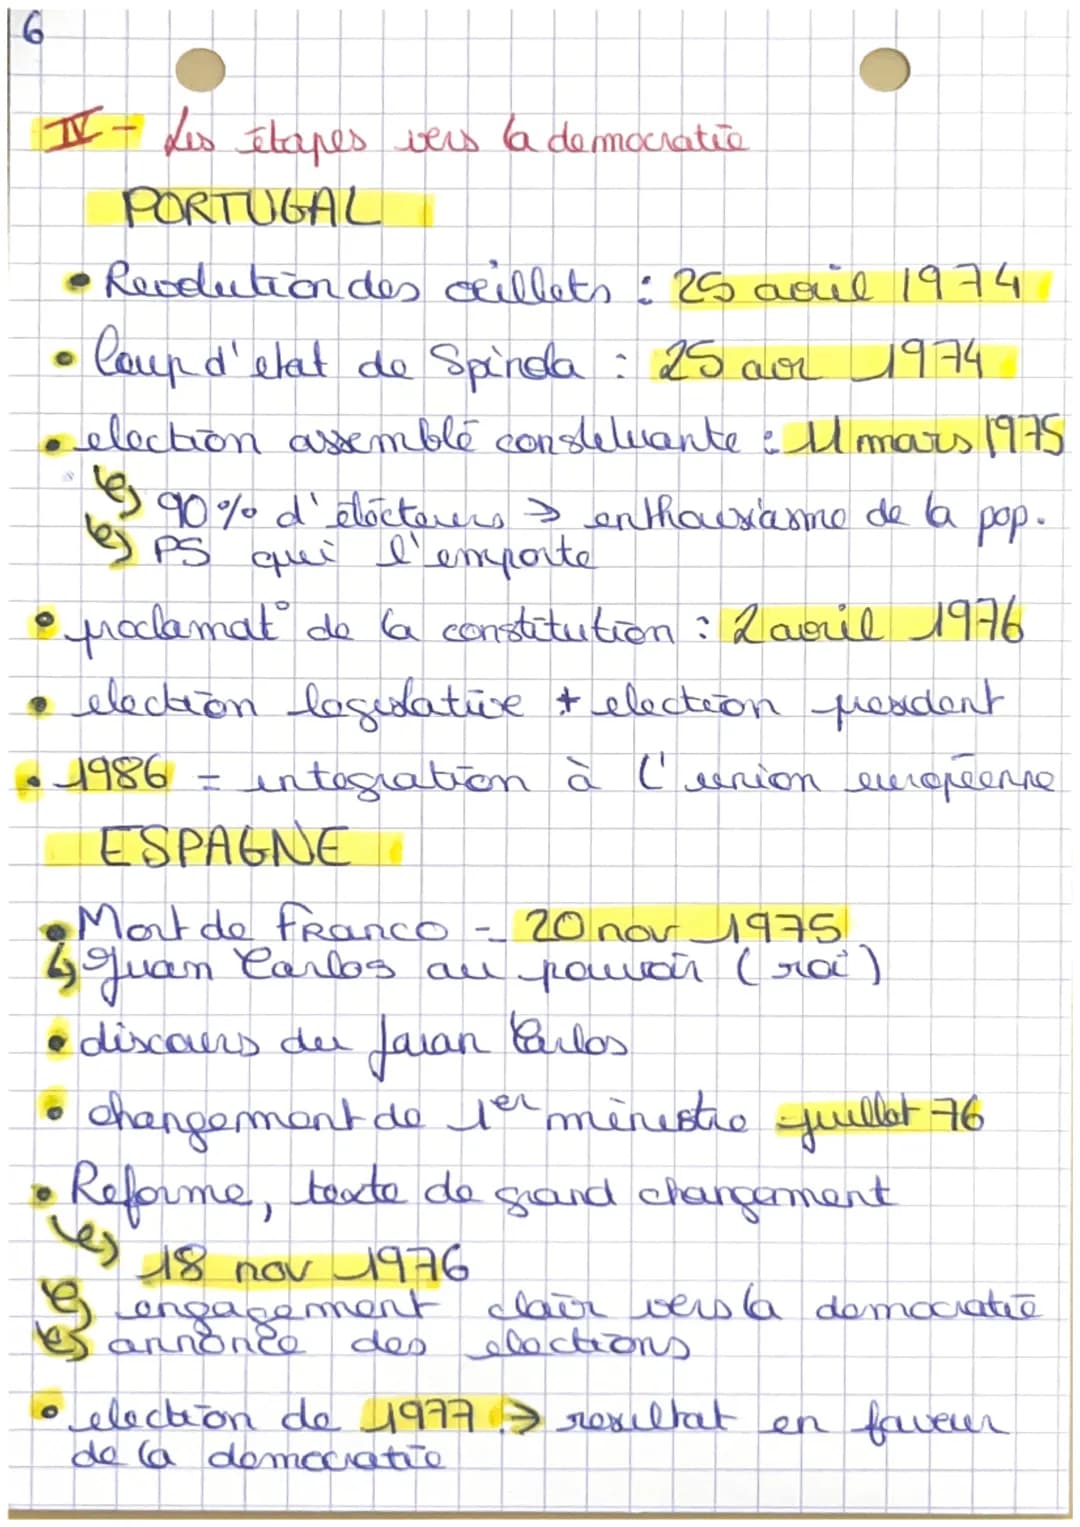 6
IV - Les étapes vers la democratie
PORTUGAL
• Revolution des œillets : 25 avril 1974
• Coup d'etat de Spinola : 25 avr 1974
• election assemblé constituante : 11 mars 1975
↳ 90% d'électeurs → enthousiasme de la pop.
↳ PS qui l'emporte
• proclamat° de la constitution : 2 avril 1976
• election legislative + election president
• 1986 = integration à l'union européenne
ESPAGNE
• Mort de Franco - 20 nov 1975
↳ Juan Carlos au pouvoir (roi)
• discours du Juan Carlos
• changement de 1er ministre juillet 76
• Reforme, texte de grand changement
↳ 18 nov 1976
↳ engagement clair vers la democratie
↳ annonce des elections
• election de 1977 → resultat en faveur
de la democratie